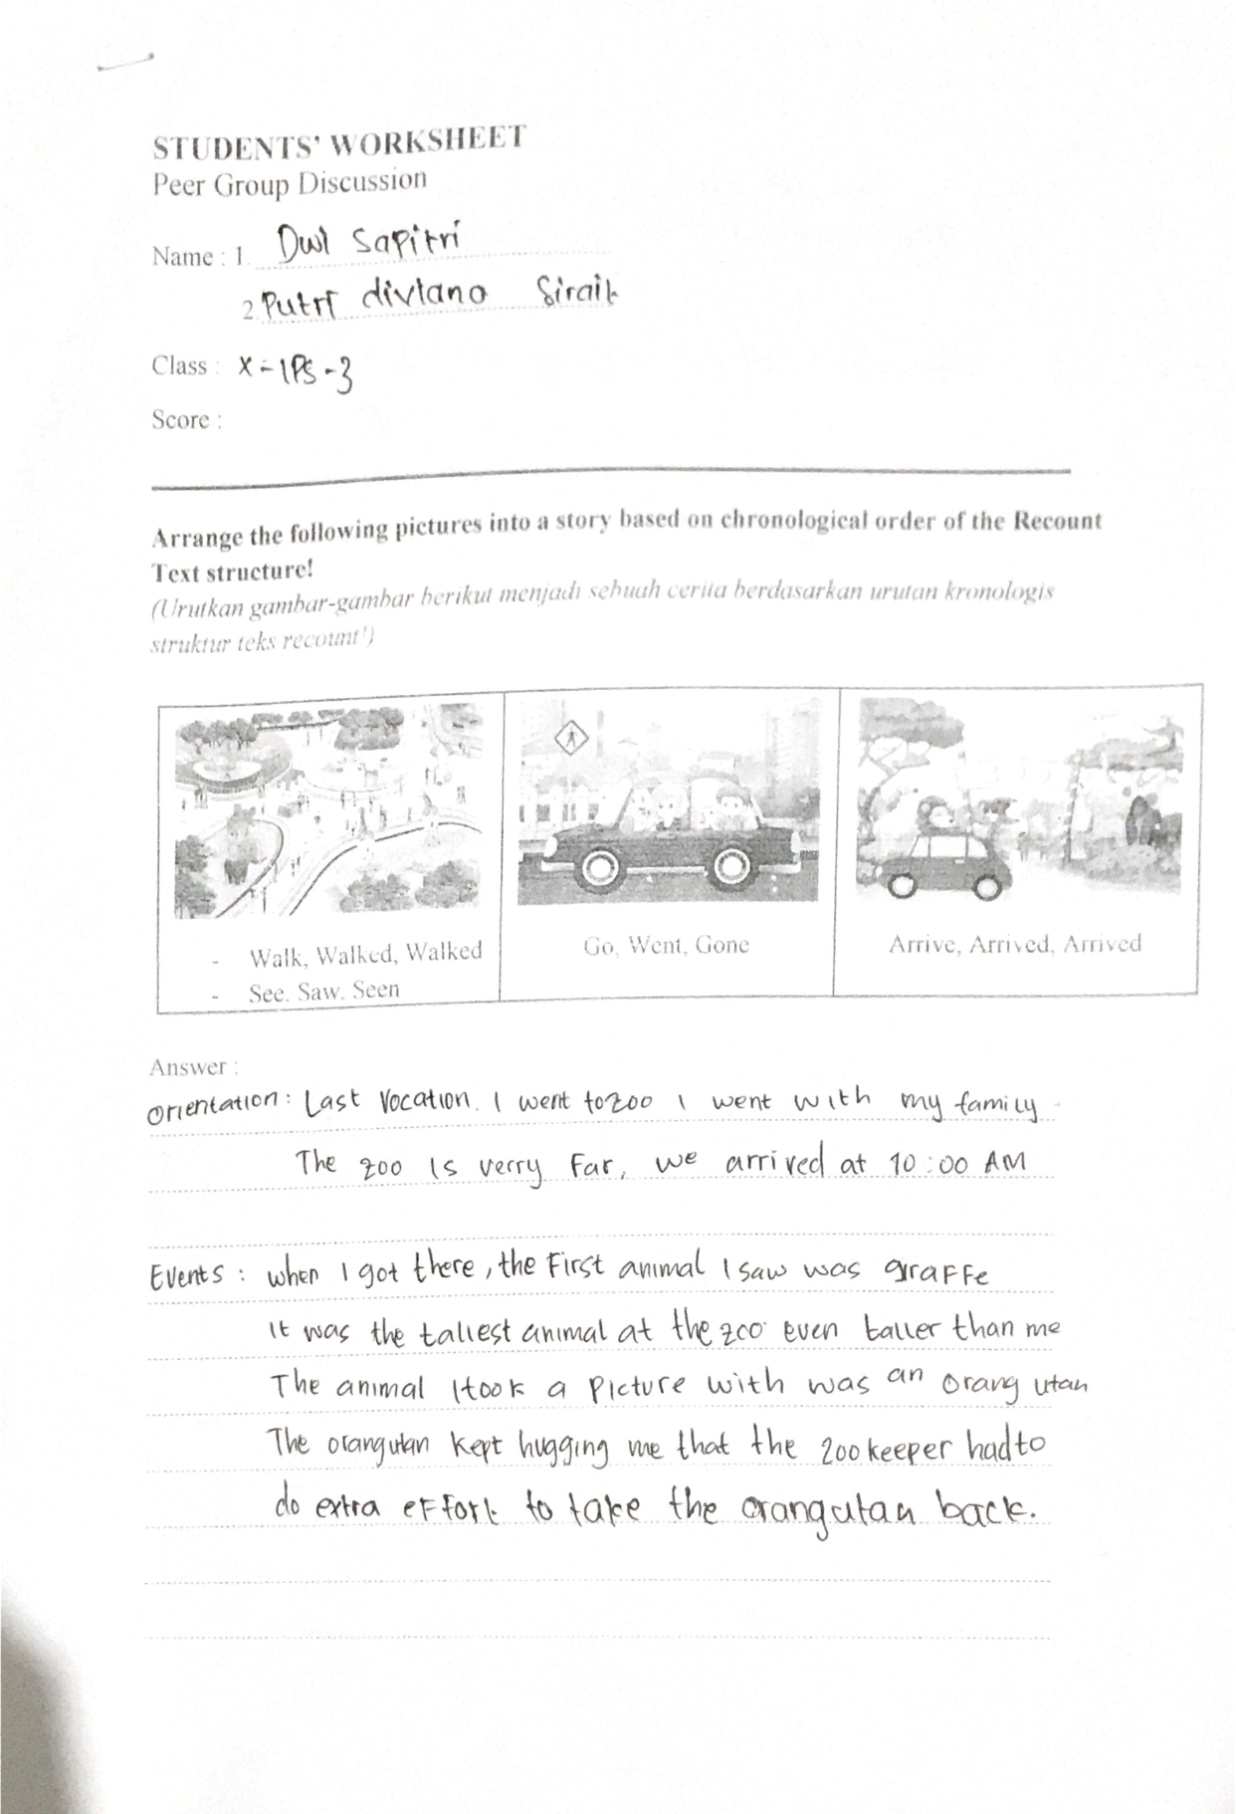 STUDENTS' WORKSHEET
Peer Group Discussion
Name : 1. Dwi Sapitri
2. Putri diviana Sirait
Class : X - IPS - 3
Score :
Arrange the following pictures into a story based on chronological order of the Recount
Text structure!
(Urutkan gambar-gambar berikut menjadi sebuah cerita berdasarkan urutan kronologis
struktur teks recount!)
- Walk, Walked, Walked
- See. Saw. Seen
Go, Went, Gone
Arrive, Arrived, Arrived
Answer :
Orientation : Last Vocation. I went to zoo I went with my family
The zoo is verry Far, we arrived at 10:00 AM
Events : when I got there, the First animal I saw was giraffe
It was the tallest animal at the zoo even taller than me
The animal I took a Picture with was an orang utan
The orangutan kept hugging me that the zookeeper had to
do extra effort to take the orangutan back.